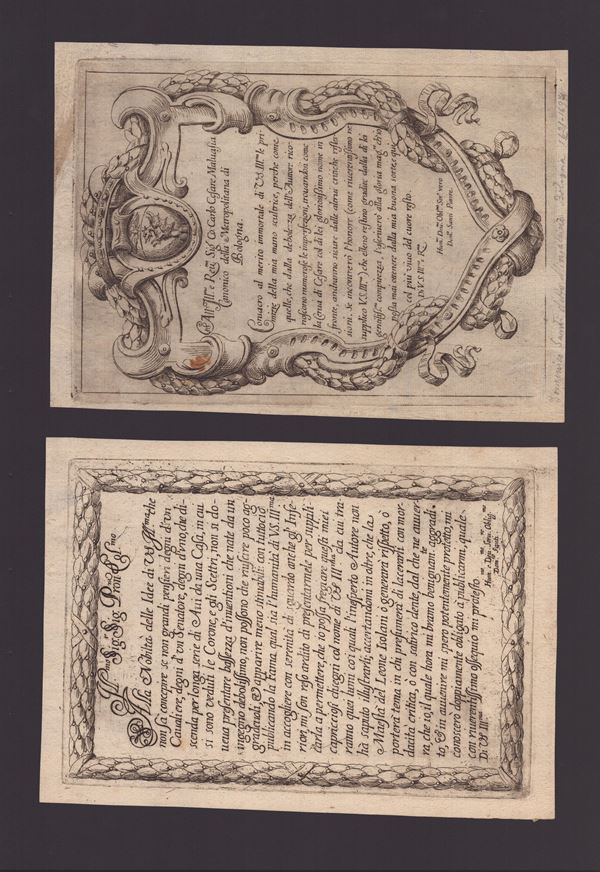 All' Ill.mo e Reu. Sig. Co. Carlo Cesare Maluasia
Canonico della Metropolitana di
Bologna.
Consacro al merito immortale di V.S. Ill.ma le pri-
mizie della mia mano scultrice, perche come
quelle, che dalla debolezza dell'Autore rico-
noscono numerose le imperfezioni, trouandosi come
la Corona di Cesare col di lei gloriosissimo nome in
fronte, anderanno sicure dalle altrui critiche
supplico V.S. Ill.ma) che elino restino gradite dalla di lei
possa mai ottenere dalla mia buona sorte, qui
col più viuo del cuore resto.
D. V.S. Ill.ma e R.
Hum. Deu. Obl.mo Ser. vero
Dom. Santi Pittore.
Ill.mo Sig. Sig. Pron. Col.mo
Alla Nobiltà delle Idee di V.S. Ill.ma che
non sà concepire se non grandi pensieri, degni d'un
Caualiere, degni d'un Senatore, degni d'vno, che di-
scenda per longa serie di Aui da una Casa, in cui
si sono veduti le Corone, e gli Scettri, non si do-
ueua presentare bassezza d'inuentioni che nate da un
ingegno debolissimo, non possono che riuscire poco ag-
gradeuoli, & apparire meno stimabili: con tuttociò
publicando la Fama, qual sia l'humanità di V.S. Ill.ma
in accogliere con serenità di sguardo anche gl'Infe-
riori, mi son reso ardito di presentarmele per suppli-
carla a permettere, che io possa fregiare questi miei
capricciosi disegni col nome di V.S. Ill.ma da cui tra-
ranno quei lumi co' i quali l'inesperto Autore non
hà saputo illustrarli, accertandomi in oltre, che la
Maestà del Leone Isolani ò genererà rispetto, ò
porterà tema in chi presumerà di lacerarli con mor-
dacità critica, ò con satirico dente, dal che ne auuer-
rà, che io, il quale hora mi bramo benignamente aggradi-
to, & in auuenire mi spero potentemente protetto, mi
conoscerò doppiamente obligato a publicarmi, quale
con riuerentissimo ossequio mi protesto
Di V.S. Ill.ma
Hum.mo Diu.mo Seru. Oblig.mo
Dom.co Santi.